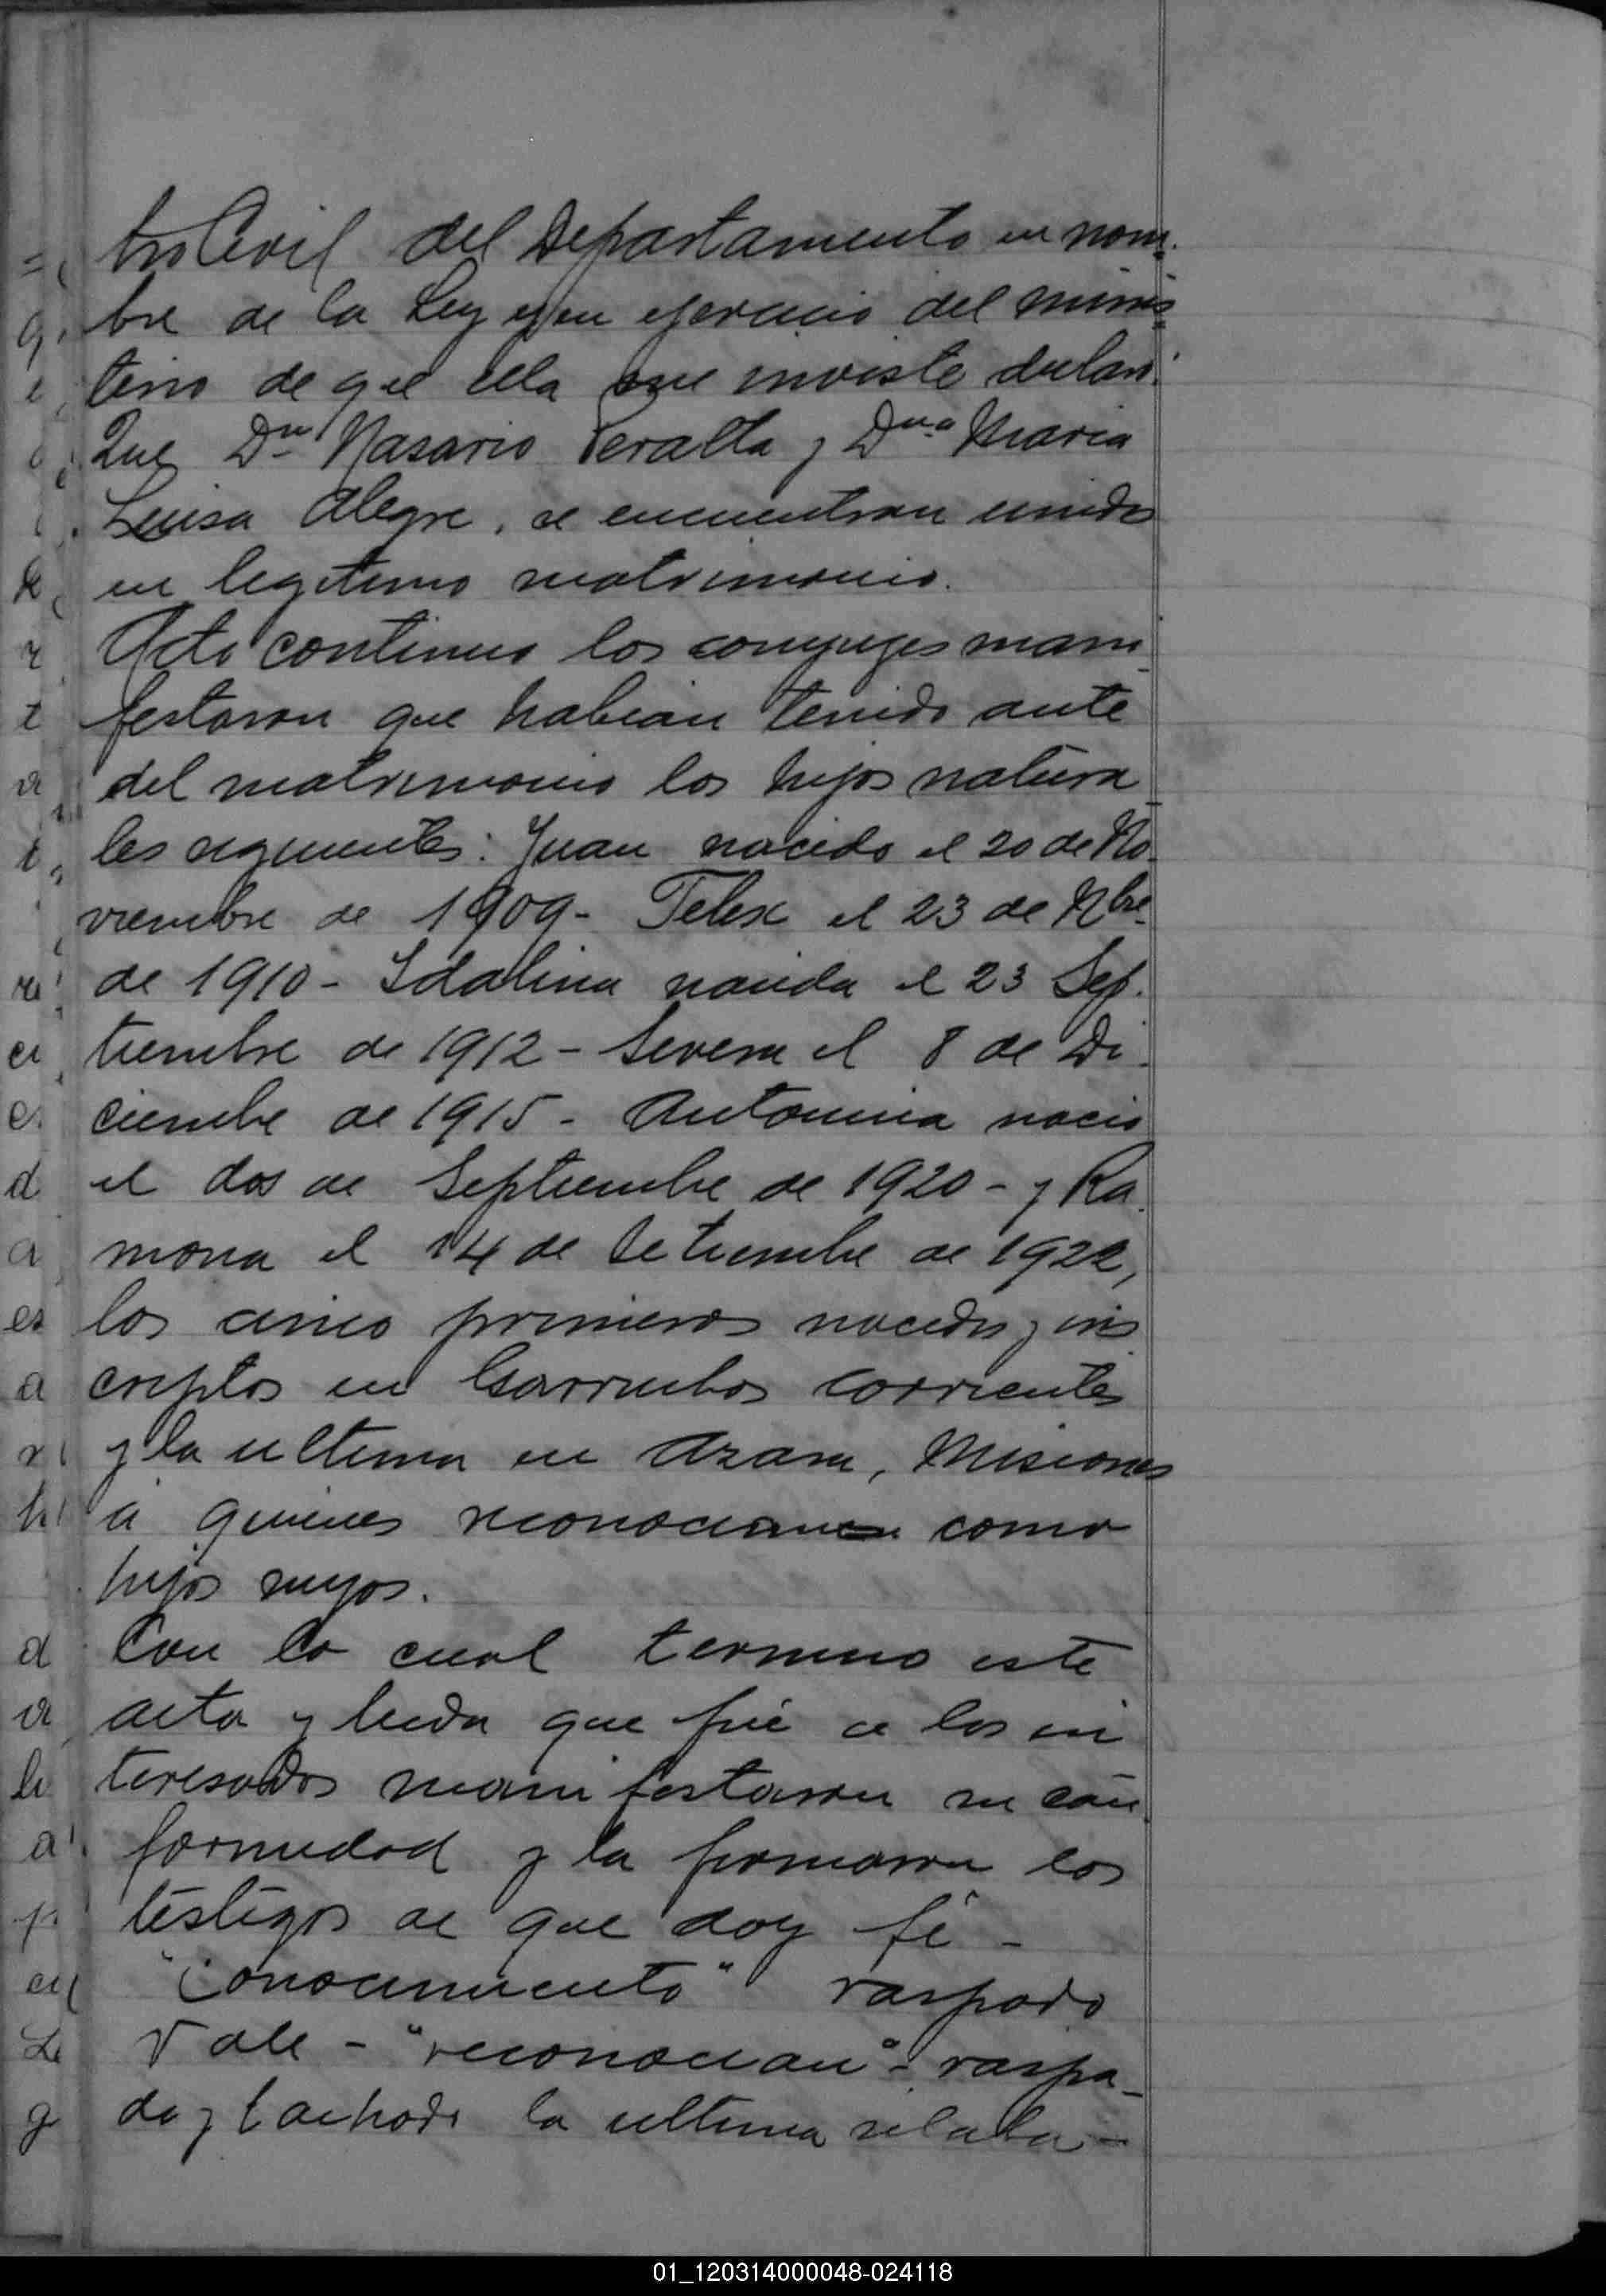 tro Civil del Departamento en nom-
bre de la Ley y en ejercicio del minis
terio de que ella me inviste declaro:
Que Dn Nasario Peralta y Dna Maria
Luisa Alegre, se encuentran unidos
en legitimo matrimonio.
Acto continuo los conyuges mani
festaron que habian tenido ante
del matrimonio los hijos natura
les siguientes: Juan nacido el 20 de No-
viembre de 1909 - Felex el 23 de Nbre
de 1910 - Idalina nacida el 23 Sep-
tiembre de 1912 - Severa el 8 de Di-
ciembre de 1915 - Antonina nacio
el dos de Septiembre de 1920 - y Ra
mona el 14 de Setiembre de 1922,
los cinco primeros nacidos y ins
criptos en Garruchos Corrientes
y la ultima en Azara, Misiones
a quienes reconocian como
hijos suyos.
Con lo cual termino este
acta y leida que fué a los in
teresados manifestaron su con
formidad y la firmaron los
testigos de que doy fé -
"Conocimiento" raspado
Vale - "reconocian" - raspa-
do y tachado la ultima silaba -
01_120314000048-024118